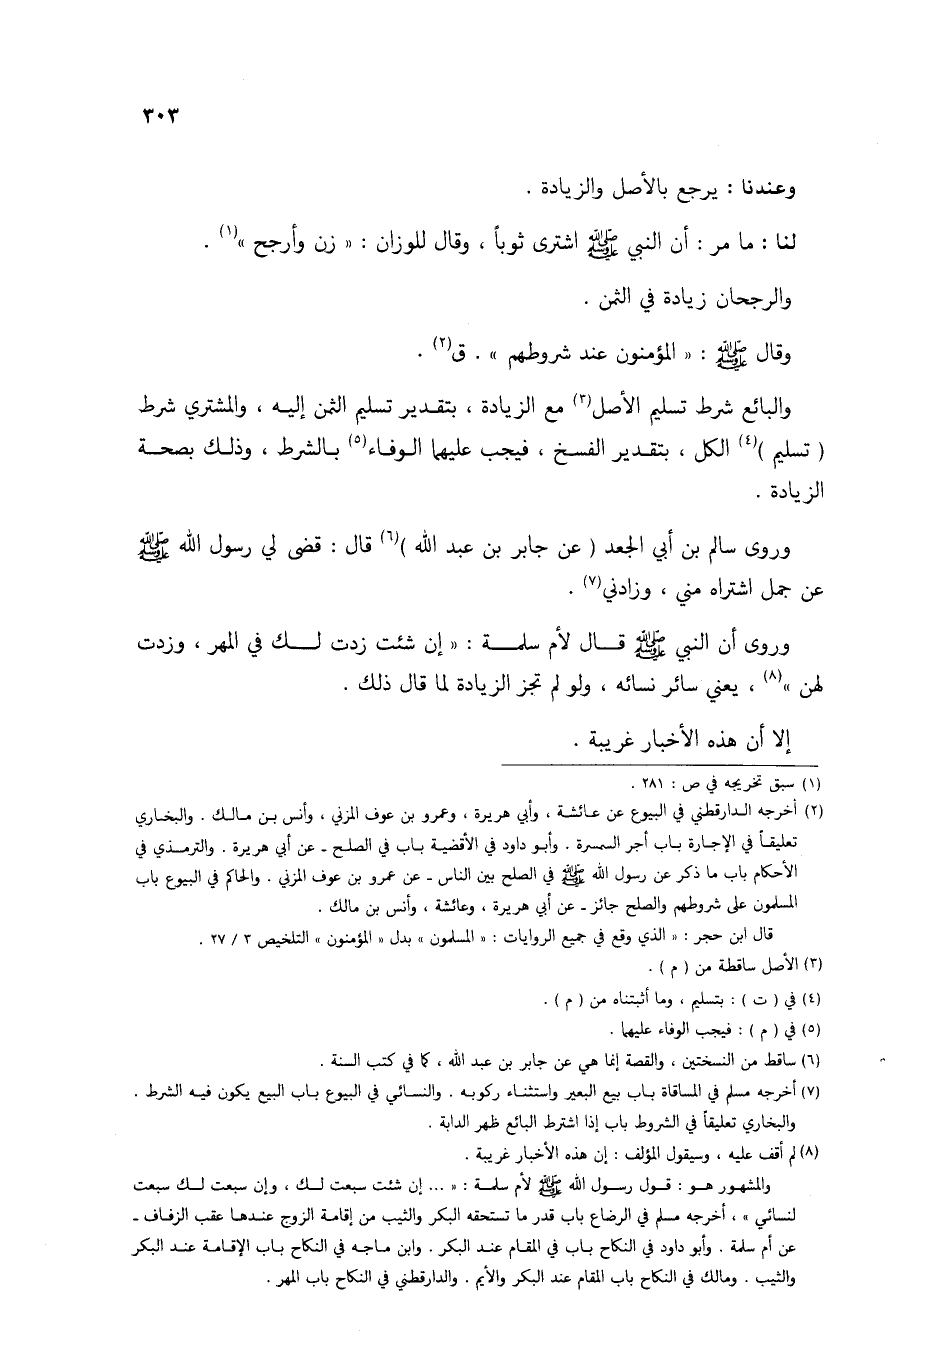 ٣٠٣
وعندنا : يرجع بالأصل والزيادة .
لنا : ما مر : أن النبي ﷺ اشترى ثوباً ، وقال للوزان : « زن وأرجح »(١) .
والرجحان زيادة في الثمن .
وقال ﷺ : « المؤمنون عند شروطهم » . ق(٢) .
والبائع شرط تسليم الأصل(٣) مع الزيادة ، بتقدير تسليم الثمن إليه ، والمشتري شرط
( تسليم )(٤) الكل ، بتقدير الفسخ ، فيجب عليهما الوفاء(٥) بالشرط ، وذلك بصحة
الزيادة .
وروى سالم بن أبي الجعد ( عن جابر بن عبد الله )(٦) قال : قضى لي رسول الله ﷺ
عن جمل اشتراه مني ، وزادني(٧) .
وروى أن النبي ﷺ قال لأم سلمة : « إن شئت زدت لك في المهر ، وزدت
لهن »(٨) ، يعني سائر نسائه ، ولو لم تجز الزيادة لما قال ذلك .
إلا أن هذه الأخبار غريبة .
(١) سبق تخريجه في ص : ٢٨١ .
(٢) أخرجه الدارقطني في البيوع عن عائشة ، وأبي هريرة ، وعمرو بن عوف المزني ، وأنس بن مالك . والبخاري
تعليقاً في الإجارة باب أجر السمسرة . وأبو داود في الأقضية باب في الصلح ـ عن أبي هريرة . والترمذي في
الأحكام باب ما ذكر عن رسول الله ﷺ في الصلح بين الناس ـ عن عمرو بن عوف المزني . والحاكم في البيوع باب
المسلمون على شروطهم والصلح جائز ـ عن أبي هريرة ، وعائشة ، وأنس بن مالك .
قال ابن حجر : « الذي وقع في جميع الروايات : « المسلمون » بدل « المؤمنون » التلخيص ٣ / ٢٧ .
(٣) الأصل ساقطة من ( م ) .
(٤) في ( ت ) : بتسليم ، وما أثبتناه من ( م ) .
(٥) في ( م ) : فيجب الوفاء عليهما .
(٦) ساقط من النسختين ، والقصة إنما هي عن جابر بن عبد الله ، كما في كتب السنة .
(٧) أخرجه مسلم في المساقاة باب بيع البعير واستثناء ركوبه . والنسائي في البيوع باب البيع يكون فيه الشرط .
والبخاري تعليقاً في الشروط باب إذا اشترط البائع ظهر الدابة .
(٨) لم أقف عليه ، وسيقول المؤلف : إن هذه الأخبار غريبة .
والمشهور هو : قول رسول الله ﷺ لأم سلمة : « ... إن شئت سبعت لك ، وإن سبعت لك سبعت
لنسائي » ، أخرجه مسلم في الرضاع باب قدر ما تستحقه البكر والثيب من إقامة الزوج عندها عقب الزفاف ـ
عن أم سلمة . وأبو داود في النكاح باب في المقام عند البكر . وابن ماجه في النكاح باب الإقامة عند البكر
والثيب . ومالك في النكاح باب المقام عند البكر والأيم . والدارقطني في النكاح باب المهر .